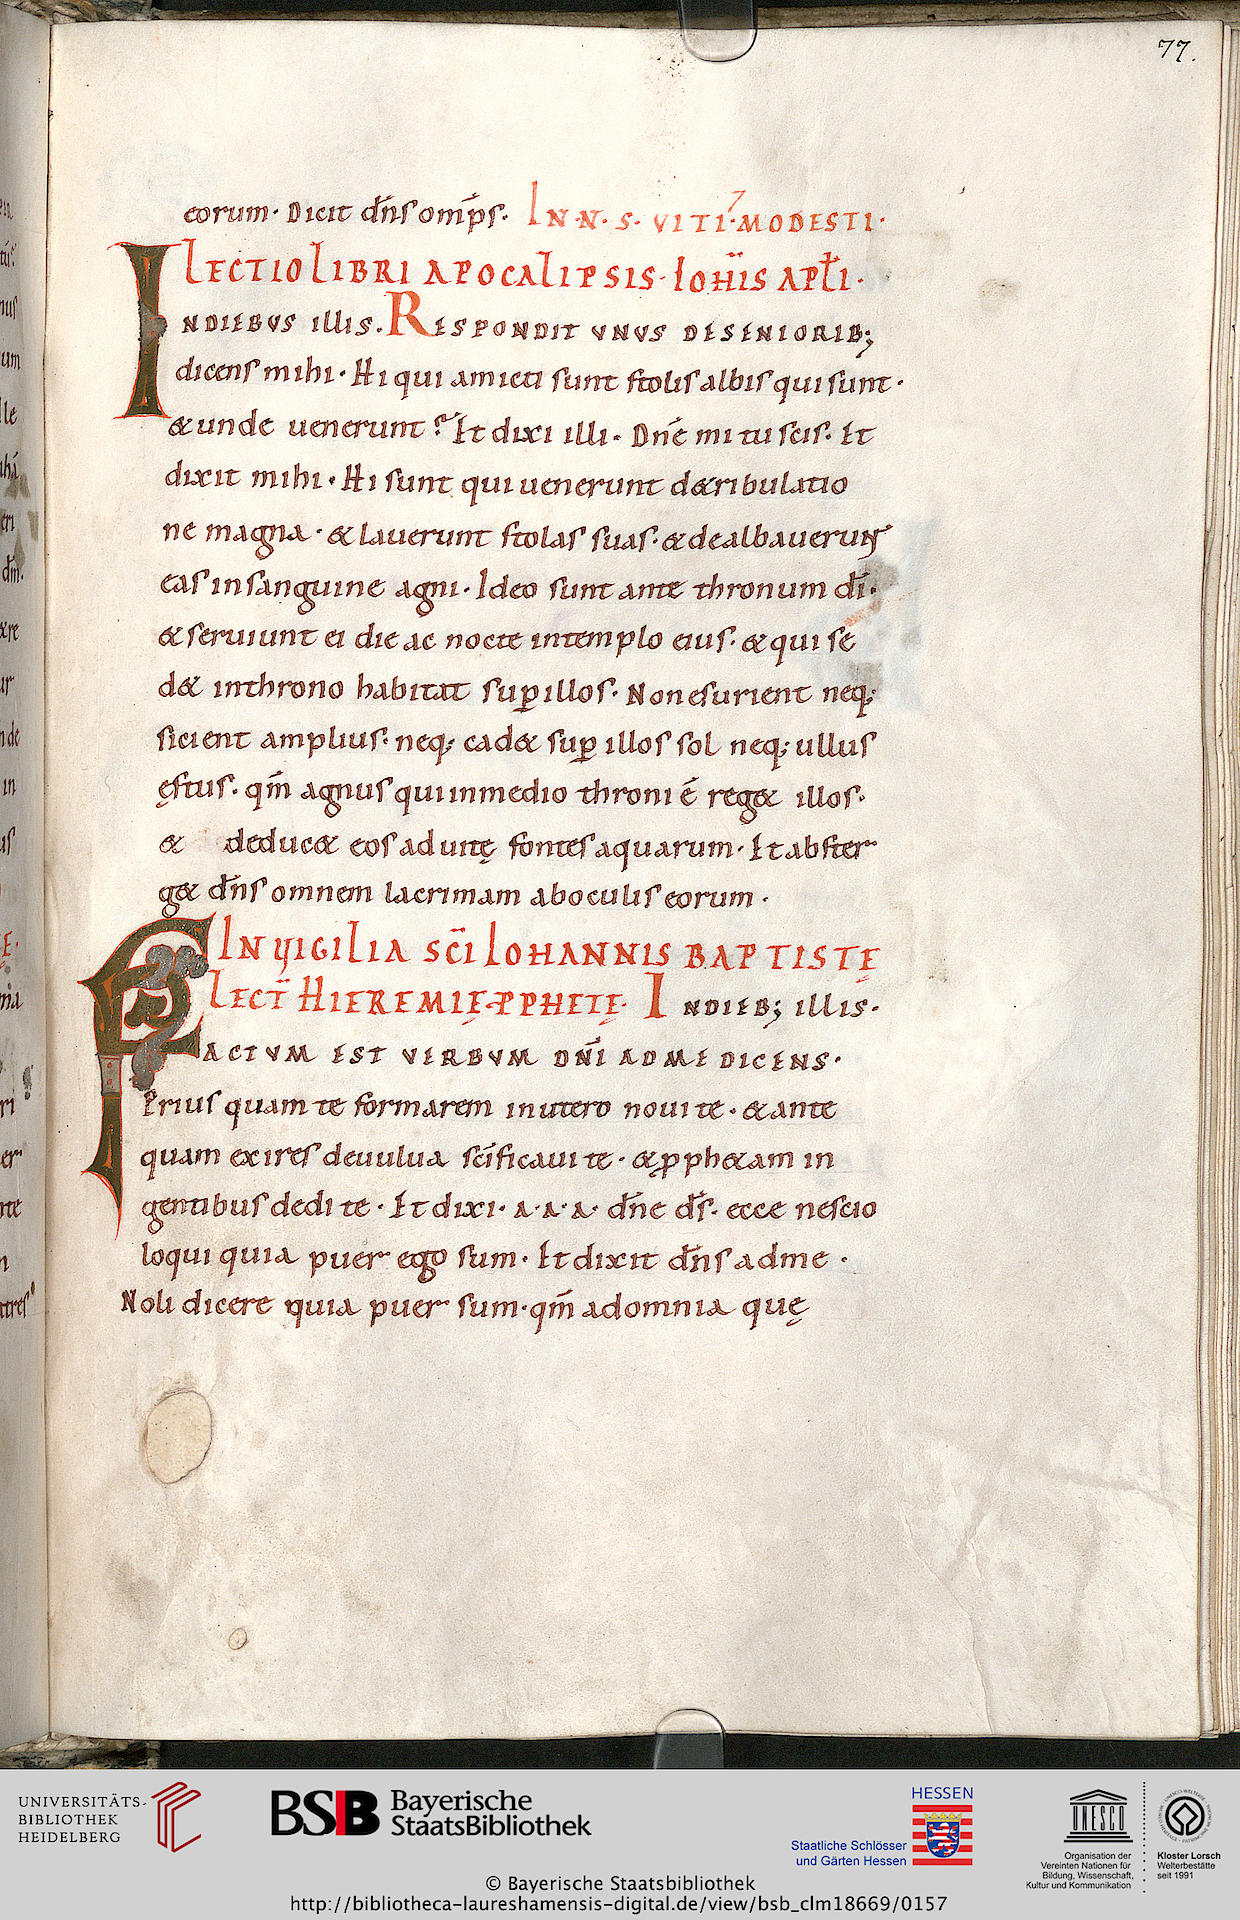 77.
eorum· Dicit dn̄s omp̄s· IN·N·S· VITI·MODESTI·
LECTIO LIBRI APOCALIPSIS· IOHI̅S APL̅I·
INDIEBVS illis. RESPONDIT VNVS DESENIORIB;
dicens mihi· Hi qui amicti sunt stolis albis qui sunt·
& unde uenerunt? Et dixi illi· Dn̄e mi tu scis· Et
dixit mihi· Hi sunt qui uenerunt d&ribulatio
ne magna· & lauerunt stolas suas· & dealbauerunt
eas insanguine agni· Ideo sunt ante thronum dī·
& seruiunt ei die ac nocte intemplo eius· & qui se
d& inthrono habitat sup̱ illos· Non esurient neq;
sicient amplius· neq; cad& sup̱ illos sol neq; ullus
ęstus· qm̄ agnus qui inmedio throni ē reg& illos·
& deduc& eos ad uitę fontes aquarum· Et abster
g& dn̄s omnem lacrimam aboculis eorum·
IN VIGILIA SC̄I IOHANNIS BAPTISTĘ
LECT̄ HIEREMIĘ PPHETĘ· INDIEB; illis·
FACTVM EST VERBVM DN̄I ADME DICENS·
Prius quam te formarem inutero noui te· & ante
quam exires deuulua sc̄ificaui te· & p̱ph&am in
gentibus dedi te· Et dixi· A·A·A· dn̄e ds̄· ecce nescio
loqui quia puer ego sum· Et dixit dn̄s adme·
Noli dicere quia puer sum· qm̄ adomnia quę
UNIVERSITÄTS-
BIBLIOTHEK
HEIDELBERG
BSB Bayerische
StaatsBibliothek
HESSEN
Staatliche Schlösser
und Gärten Hessen
UNESCO
Organisation der
Vereinten Nationen für
Bildung, Wissenschaft,
Kultur und Kommunikation
Kloster Lorsch
Welterbestätte
seit 1991
© Bayerische Staatsbibliothek
http://bibliotheca-laureshamensis-digital.de/view/bsb_clm18669/0157